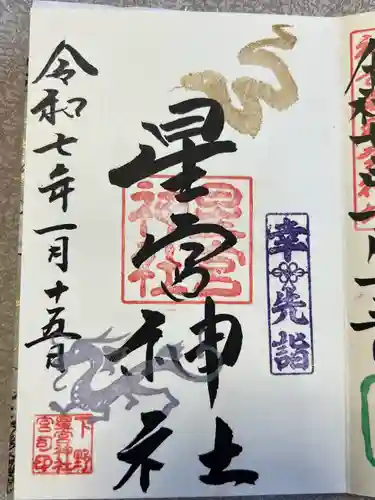 幸先詣
星宮神社
令和七年一月十五日
星宮神社
下野
星宮神社
宮司印